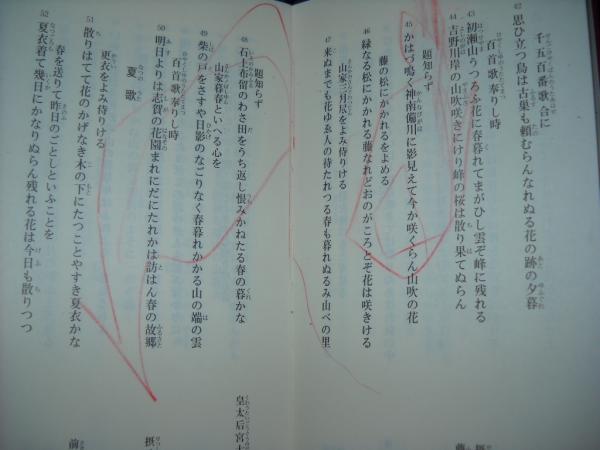 42 思ひ立つ鳥は古巣も頼むらんなれぬる花の跡の夕暮
千五百番歌合に
43 初瀬山うつろふ花に春暮れてまがひし雲ぞ峰に残れる
百首歌奉りし時
44 吉野川岸の山吹咲きにけり峰の桜は散り果てぬらん
題知らず
45 かはづ鳴く神南備川に影見えて今か咲くらん山吹の花
藤の松にかかれるをよめる
46 緑なる松にかかれる藤なれどおのがころとぞ花は咲きける
山家三月尽をよみ侍りける
47 来ぬまでも花ゆゑ人の待たれつる春も暮れぬるみ山べの里
題知らず
48 石上布留のわさ田をうち返し恨みかねたる春の暮かな
山家暮春といへる心を
49 柴の戸をさすや日影のなごりなく春暮れかかる山の端の雲
百首歌奉りし時
50 明日よりは志賀の花園まれにだにたれかは訪はん春の故郷
夏歌
更衣をよみ侍りける
51 散りはてて花のかげなき木の下にたつことやすき夏衣かな
春を送りて昨日のごとしといふことを
52 夏衣着て幾日にかなりぬらん残れる花は今日も散りつつ
皇太后宮大
摂
前